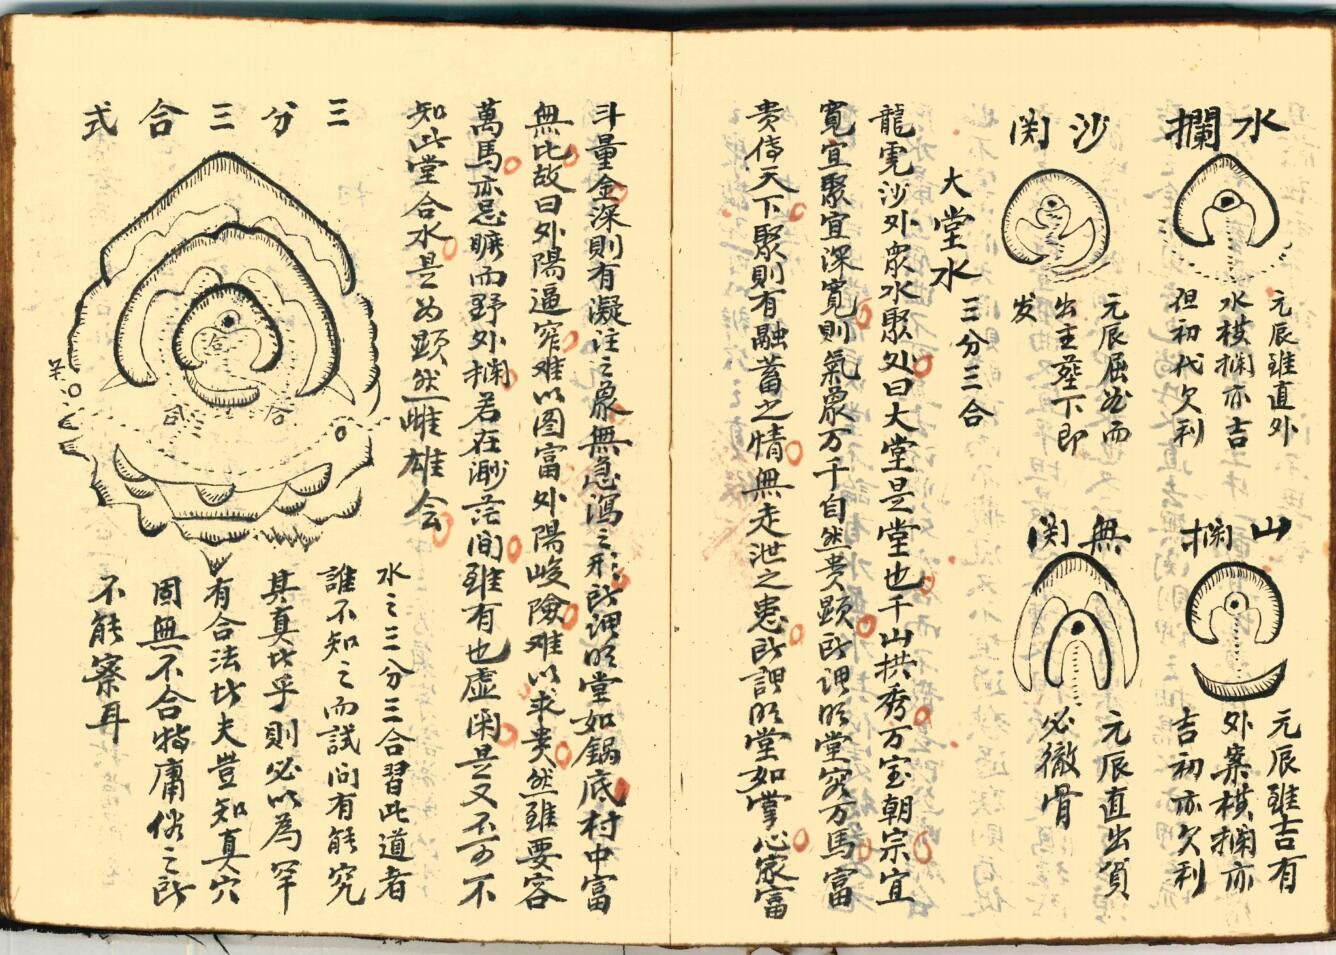 水攔
元辰雖直外
水橫攔亦吉
但初代欠利
山攔
元辰雖吉有
外案橫攔亦
吉初亦欠利
沙関
元辰屈曲而
出主塟下即
发
無関
元辰直出貧
必徹骨
大堂水
三分三合
龍虎沙外衆水聚处曰大堂是堂也千山拱秀万宝朝宗宜
寬宜聚宜深寬則氣象万千自然贵顕所謂明堂容万馬富
贵侍天下聚則有融蓄之情無走泄之患所謂明堂如掌心家富
斗量金深則有凝注之象無急瀉之形所謂明堂如鍋底村中富
無比故曰外陽逼窄难以图富外陽峻險难以求贵然雖要容
萬馬亦忌曠而野外攔若在渺茫间雖有也虚闲是又不可不
知此堂合水是为顕然雌雄会
三分三合式
合
合
合
水之三分三合習此道者
誰不知之而試问有能究
其真此乎則必以為罕
有合法功夫豈知真穴
固無不合特庸俗之所
不能察耳